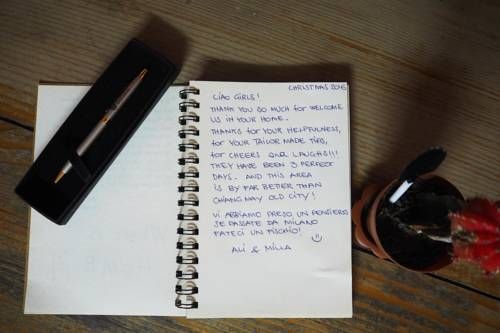 CHRISTMAS 2016
CIAO GIRLS!
THANK YOU SO MUCH for WELCOME
US IN YOUR HOME.
THANKS for YOUR HELPFULNESS,
for YOUR TAILOR MADE TIPS,
for CHEERS and LAUGHS!!!
THEY HAVE BEEN 3 PERFECT
DAYS. AND THIS AREA
IS BY FAR BETTER THAN
CHIANG MAY OLD CITY!
VI ABBIAMO PRESO UN PENSIERO
SE PASSATE DA MILANO
FATECI UN FISCHIO!
ALI & MILLA